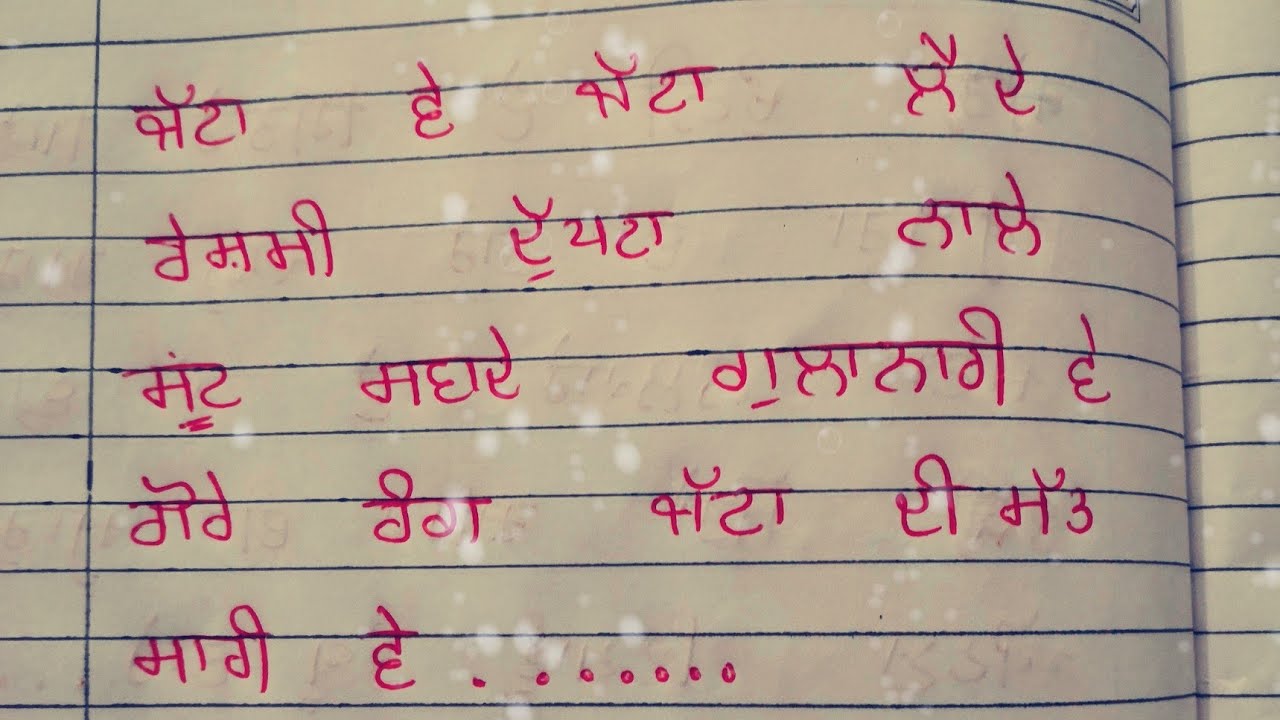 ਜੱਟਾ ਵੇ ਜੱਟਾ ਲੈ ਦੇ
ਰੇਸ਼ਮੀ ਦੁੱਪਟਾ ਨਾਲੇ
ਸੂੰਟ ਸਘਦੇ ਗੁਲਾਨਾਰੀ ਵੇ
ਗੋਰੇ ਰੰਗ ਜੱਟਾ ਦੀ ਮੱਤ
ਮਾਰੀ ਵੇ . . . . . . . .